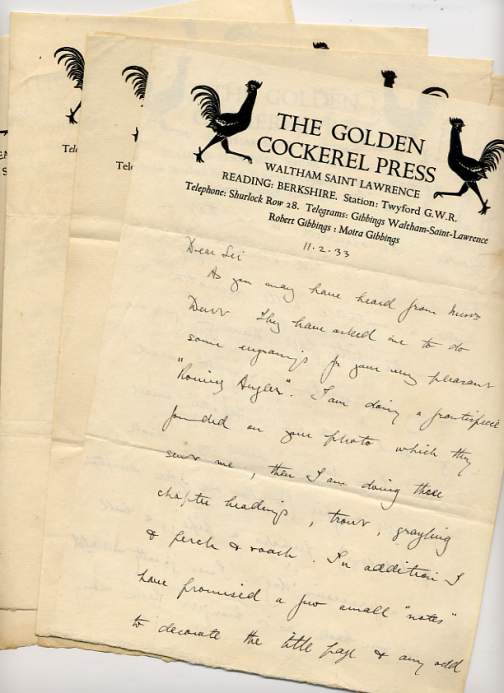 THE GOLDEN
COCKEREL PRESS
WALTHAM SAINT LAWRENCE
READING: BERKSHIRE. Station: Twyford G.W.R.
Telephone: Shurlock Row 28. Telegrams: Gibbings Waltham-Saint-Lawrence
Robert Gibbings : Moira Gibbings
11.2.33
Dear Sir
As you may have heard from Messrs
Dent They have asked me to do
some engravings for your very pleasant
"Roving Angler". I am doing a frontispiece
founded on your photo which they
sent me, then I am doing three
chapter headings, trout, grayling
& perch & roach. In addition I
have promised a few small "notes"
to decorate the title page & any odd